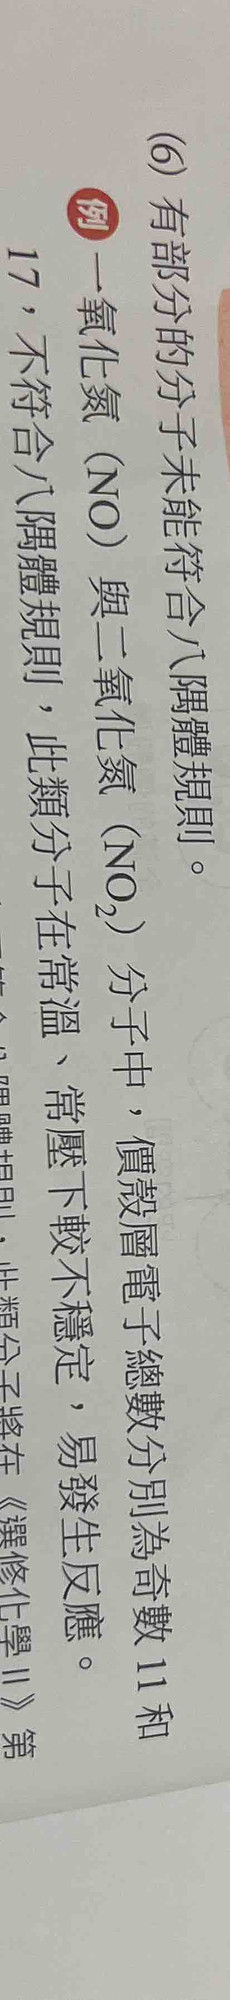 (6) 有部分的分子未能符合八隅體規則。
例 一氧化氮（NO）與二氧化氮（NO₂）分子中，價殼層電子總數分別為奇數 11 和
17，不符合八隅體規則，此類分子在常溫、常壓下較不穩定，易發生反應。
八隅體規則，此類分子將在《選修化學II》第